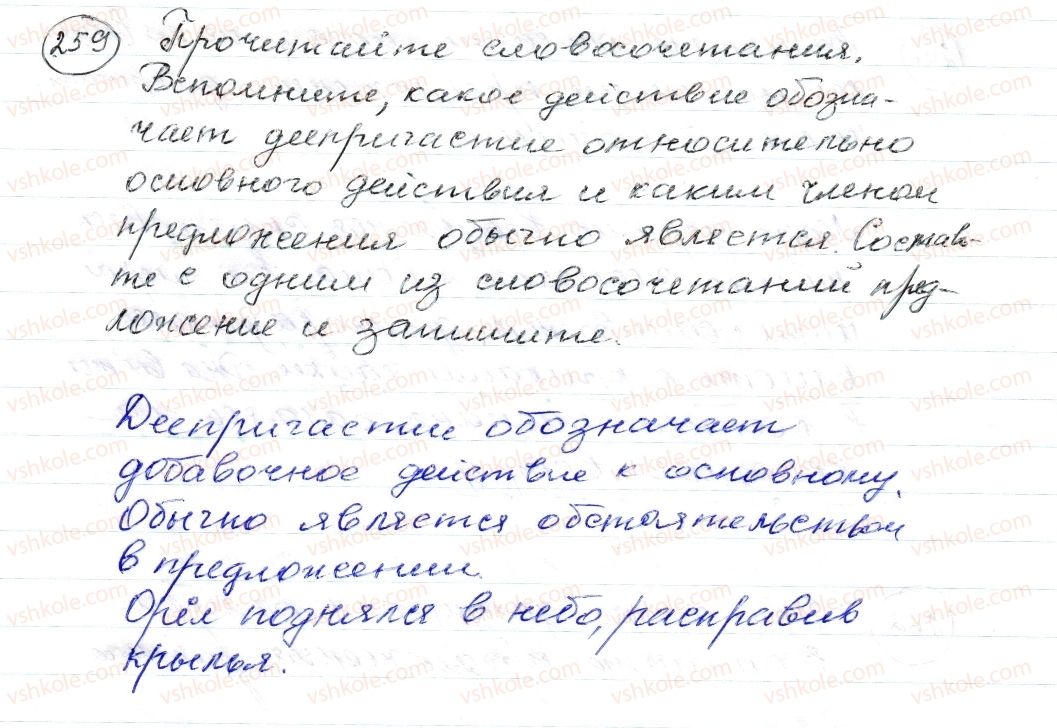 259 Прочитайте словосочетания.
Вспомните, какое действие обозна-
чает деепричастие относительно
основного действия и каким членом
предложения обычно является. Составь-
те с одним из словосочетаний пред-
ложение и запишите.
Деепричастие обозначает
добавочное действие к основному.
Обычно является обстоятельством
в предложении.
Орёл поднялся в небо, расправив
крылья.